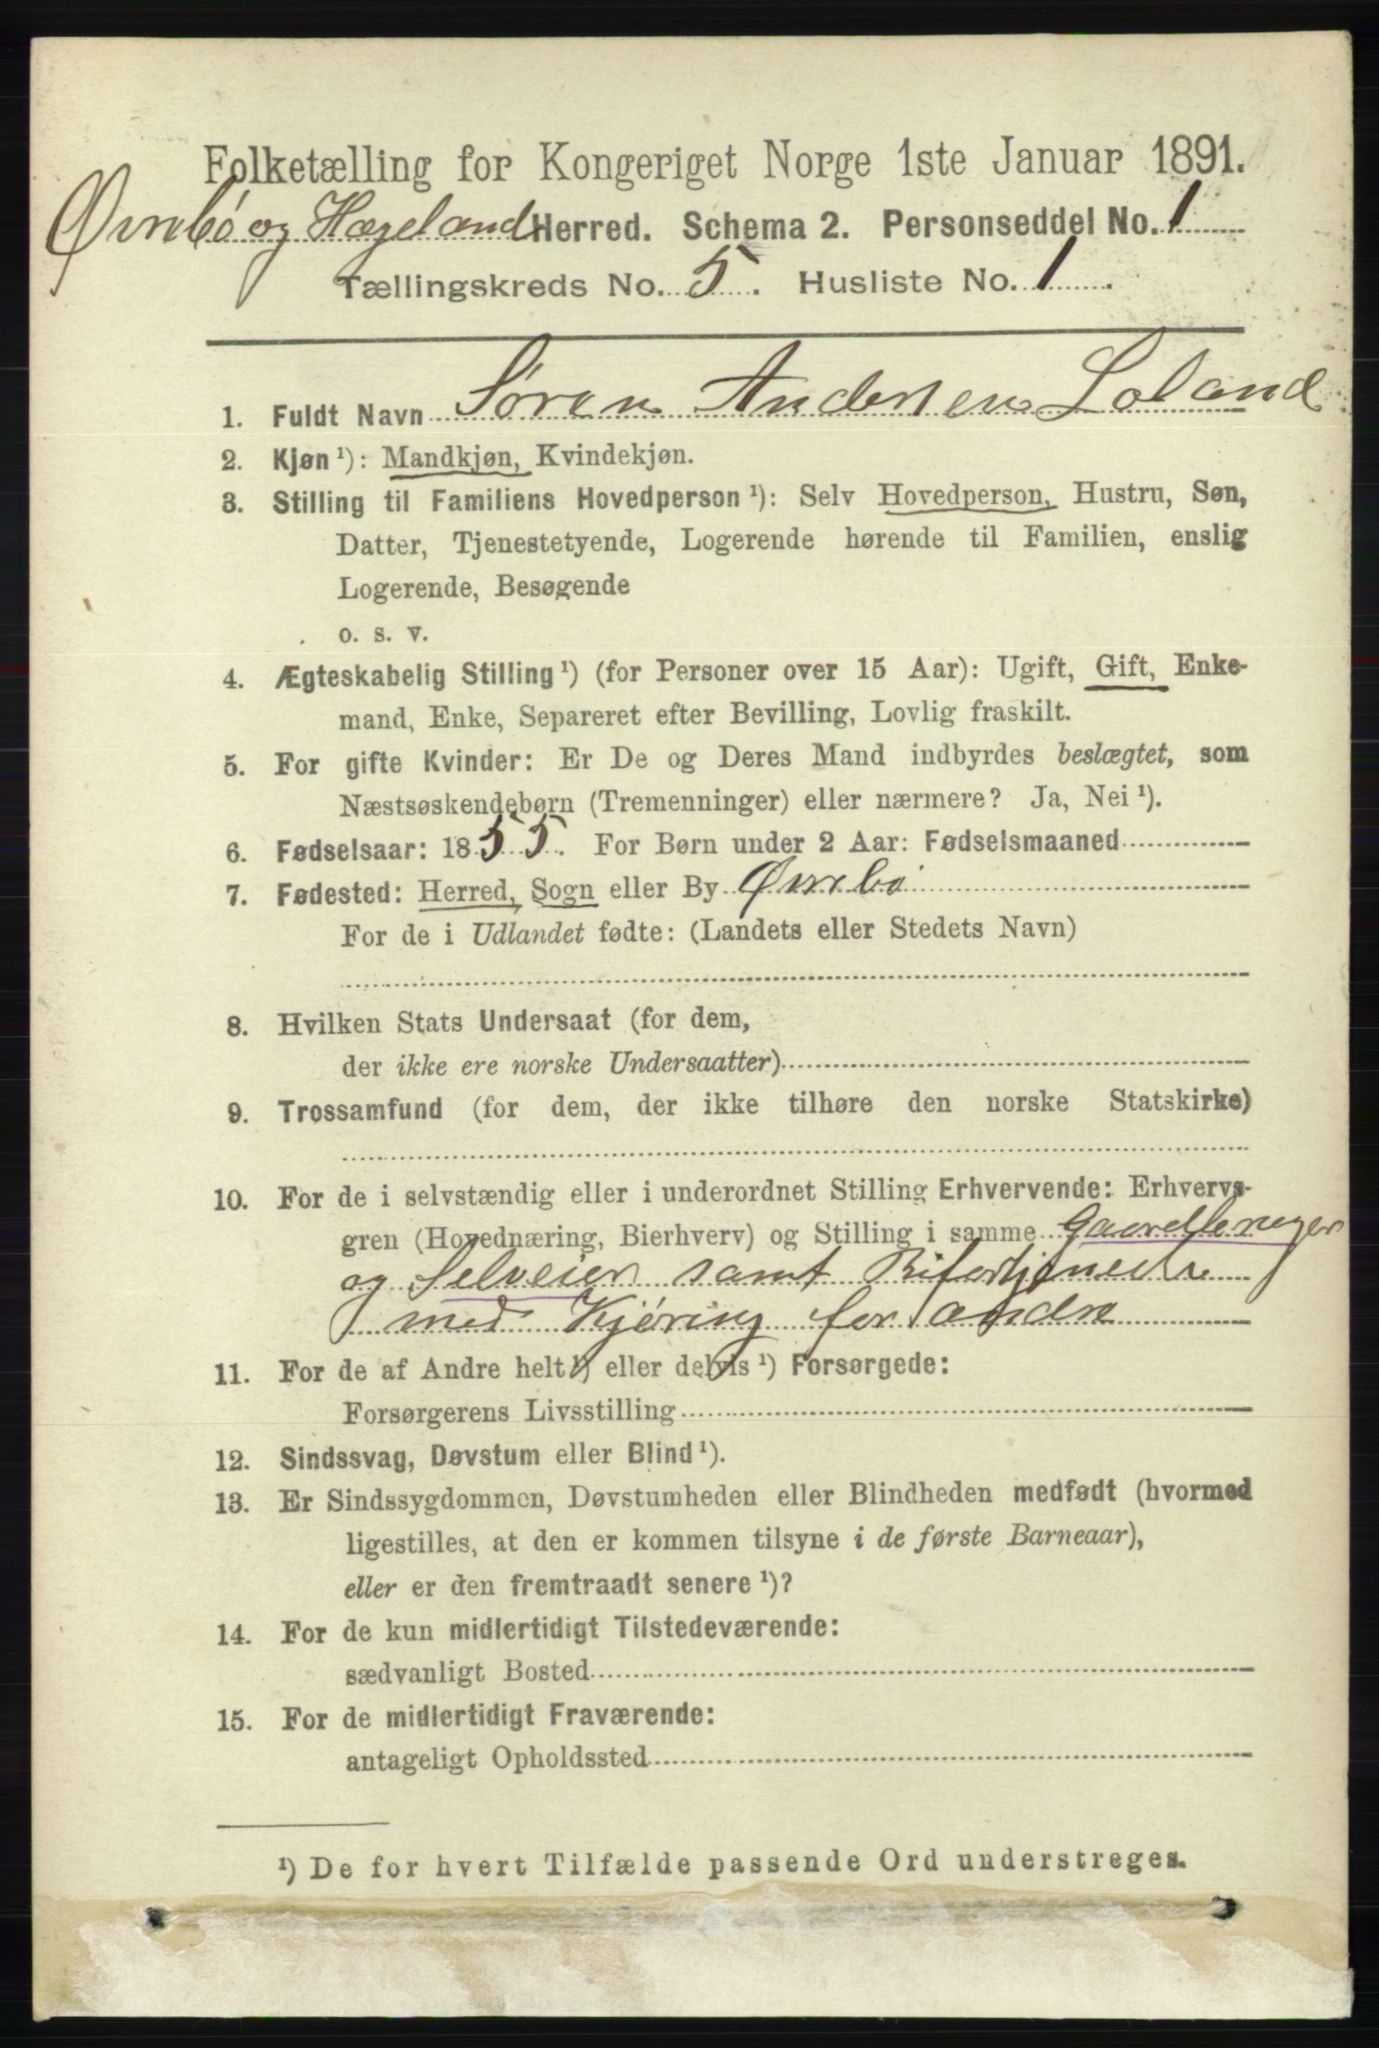 Folketælling for Kongeriget Norge 1ste Januar 1891.
Øvrebö og Hægeland Herred. Schema 2. Personseddel No. 1
Tællingskreds No. 5. Husliste No. 1.
1. Fuldt Navn Søren Andersen Loland
2. Kjøn ¹): Mandkjøn, Kvindekjøn.
3. Stilling til Familiens Hovedperson ¹): Selv Hovedperson, Hustru, Søn,
Datter, Tjenestetyende, Logerende hørende til Familien, enslig
Logerende, Besøgende
o. s. v.
4. Ægteskabelig Stilling ¹) (for Personer over 15 Aar): Ugift, Gift, Enke-
mand, Enke, Separeret efter Bevilling, Lovlig fraskilt.
5. For gifte Kvinder: Er De og Deres Mand indbyrdes beslægtet, som
Næstsøskendebørn (Tremenninger) eller nærmere? Ja, Nei ¹).
6. Fødselsaar: 1855. For Børn under 2 Aar: Fødselsmaaned
7. Fødested: Herred, Sogn eller By Øvrebö
For de i Udlandet fødte: (Landets eller Stedets Navn)
8. Hvilken Stats Undersaat (for dem,
der ikke ere norske Undersaatter)
9. Trossamfund (for dem, der ikke tilhøre den norske Statskirke)
10. For de i selvstændig eller i underordnet Stilling Erhvervende: Erhvervs-
gren (Hovednæring, Bierhverv) og Stilling i samme Gaardbruger
og Selveier samt Bifortjeneste
med Kjøring for andre
11. For de af Andre helt ¹) eller delvis ¹) Forsørgede:
Forsørgerens Livsstilling
12. Sindssvag, Døvstum eller Blind ¹).
13. Er Sindssygdommen, Døvstumheden eller Blindheden medfødt (hvormed
ligestilles, at den er kommen tilsyne i de første Barneaar),
eller er den fremtraadt senere ¹)?
14. For de kun midlertidigt Tilstedeværende:
sædvanligt Bosted
15. For de midlertidigt Fraværende:
antageligt Opholdssted
¹) De for hvert Tilfælde passende Ord understreges.